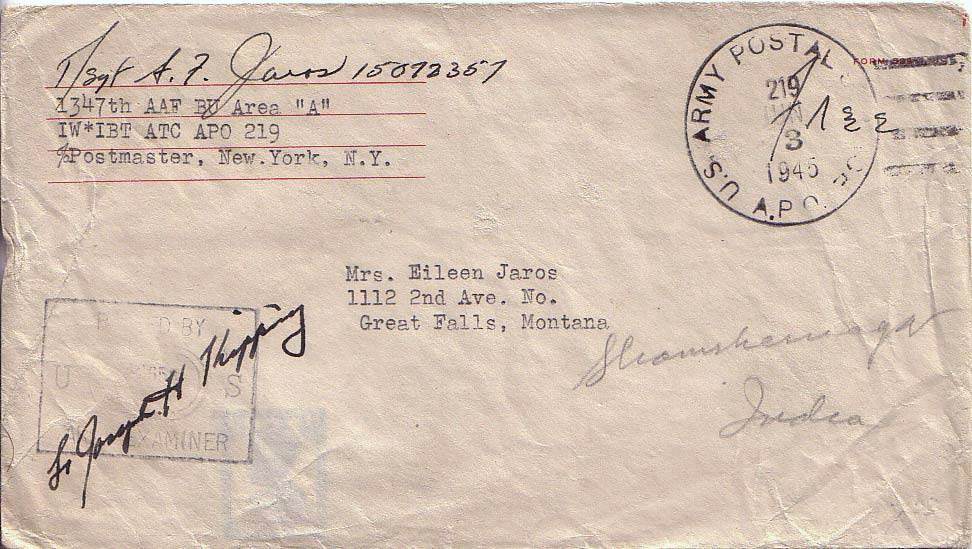 T/sgt A. F. Jaros 15072357
1347th AAF BU Area "A"
IW*IBT ATC APO 219
℅Postmaster, New.York, N.Y.
U.S. ARMY POSTAL
219
3
1945
A.P.O.
FORM
Mrs. Eileen Jaros
1112 2nd Ave. No.
Great Falls, Montana
D BY
U S
EXAMINER
Lt Joseph H
India